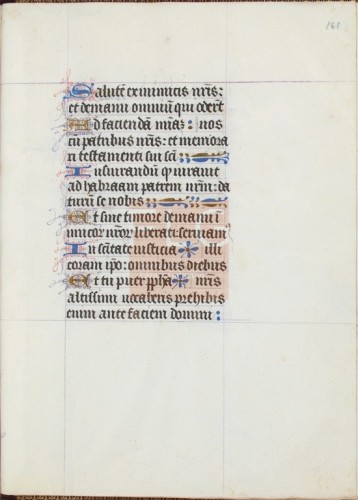 161
Salutē ex inimicis nr̄is:
et de manu omniū qui oderūt
Ad faciendā mīaȝ: nos
cū patribus nr̄is: et memora
ri testamenti sui sc̄i
Iusiurandū quiurauit
ad habraam patrem nr̄m: da
turū se nobis
Et sine timore de manu ī
imicor nr̄or liberati: seruiam
In sc̄itate iusticia illi
coram ip̄o: omnibus diebus
Et tu puer ꝓpha nr̄is
altissimi uocaberis prehibis
enim ante faciem domini: